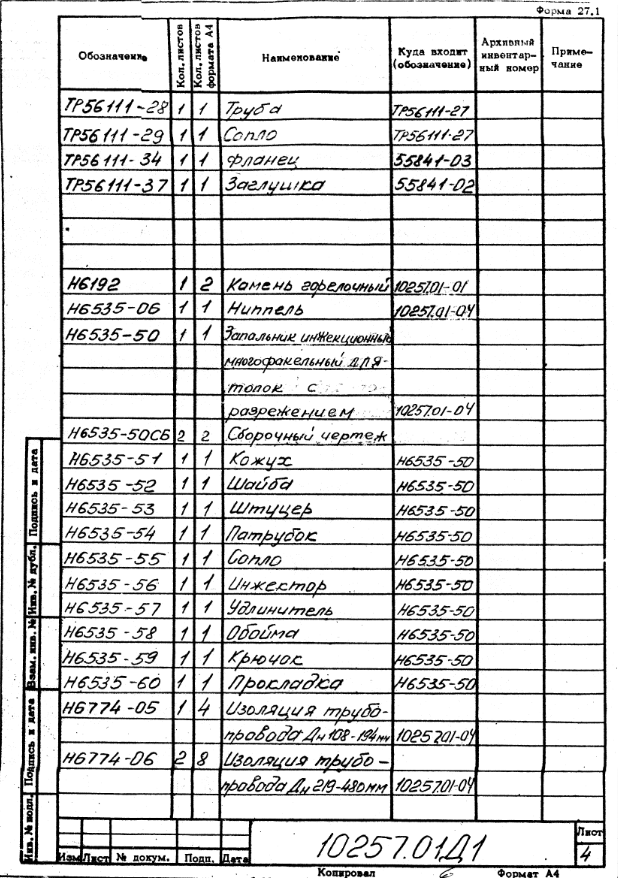 Форма 27.1
Обозначение Кол. листов Кол. листов формата А4 Наименование Куда входит (обозначение) Архивный инвентарный номер Примечание
ТР56111-28 1 1 Труба ТР56111-27
ТР56111-29 1 1 Сопло ТР56111-27
ТР56111-34 1 1 Фланец 55841-03
ТР56111-37 1 1 Заглушка 55841-02
Н6192 1 2 Камень горелочный 10257.01-01
Н6535-06 1 1 Ниппель 10257.01-04
Н6535-50 1 1 Запальник инжекционный
многофакельный для
топок с
разрежением 10257.01-04
Н6535-50СБ 2 2 Сборочный чертеж
Н6535-51 1 1 Кожух Н6535-50
Н6535-52 1 1 Шайба Н6535-50
Н6535-53 1 1 Штуцер Н6535-50
Н6535-54 1 1 Патрубок Н6535-50
Н6535-55 1 1 Сопло Н6535-50
Н6535-56 1 1 Инжектор Н6535-50
Н6535-57 1 1 Удлинитель Н6535-50
Н6535-58 1 1 Обойма Н6535-50
Н6535-59 1 1 Крючок Н6535-50
Н6535-60 1 1 Прокладка Н6535-50
Н6774-05 1 4 Изоляция трубо-
провода Дн 108-194мм 10257.01-04
Н6774-06 2 8 Изоляция трубо-
провода Дн 219-480мм 10257.01-04
Инв. № подл. Подпись и дата Взам. инв. № Инв. № дубл. Подпись и дата
Изм Лист № докум. Подп. Дата
10257.01Д1
Лист
4
Копировал 6 Формат А4